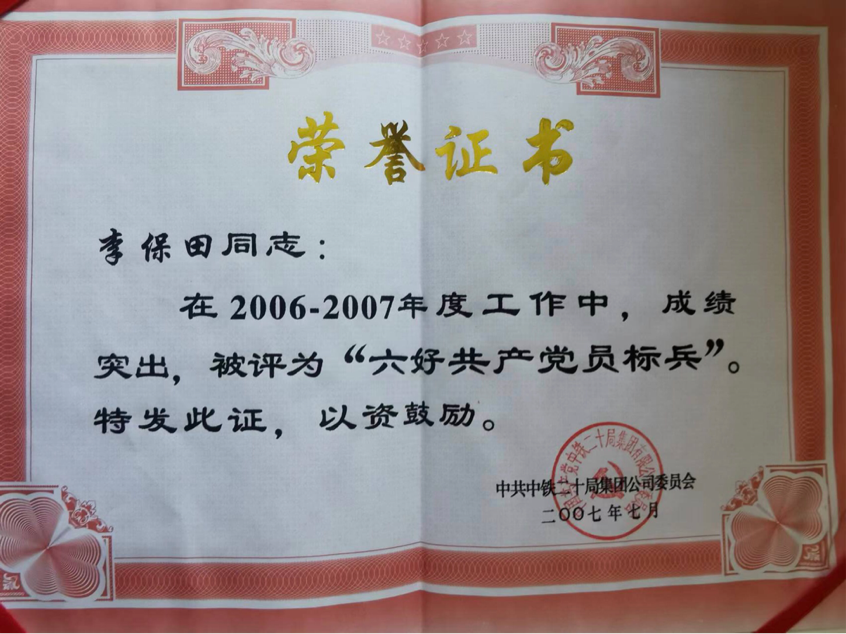 荣誉证书
李保田同志：
在2006-2007年度工作中，成绩
突出，被评为“六好共产党员标兵”。
特发此证，以资鼓励。
中共中铁二十局集团公司委员会
二〇〇七年七月